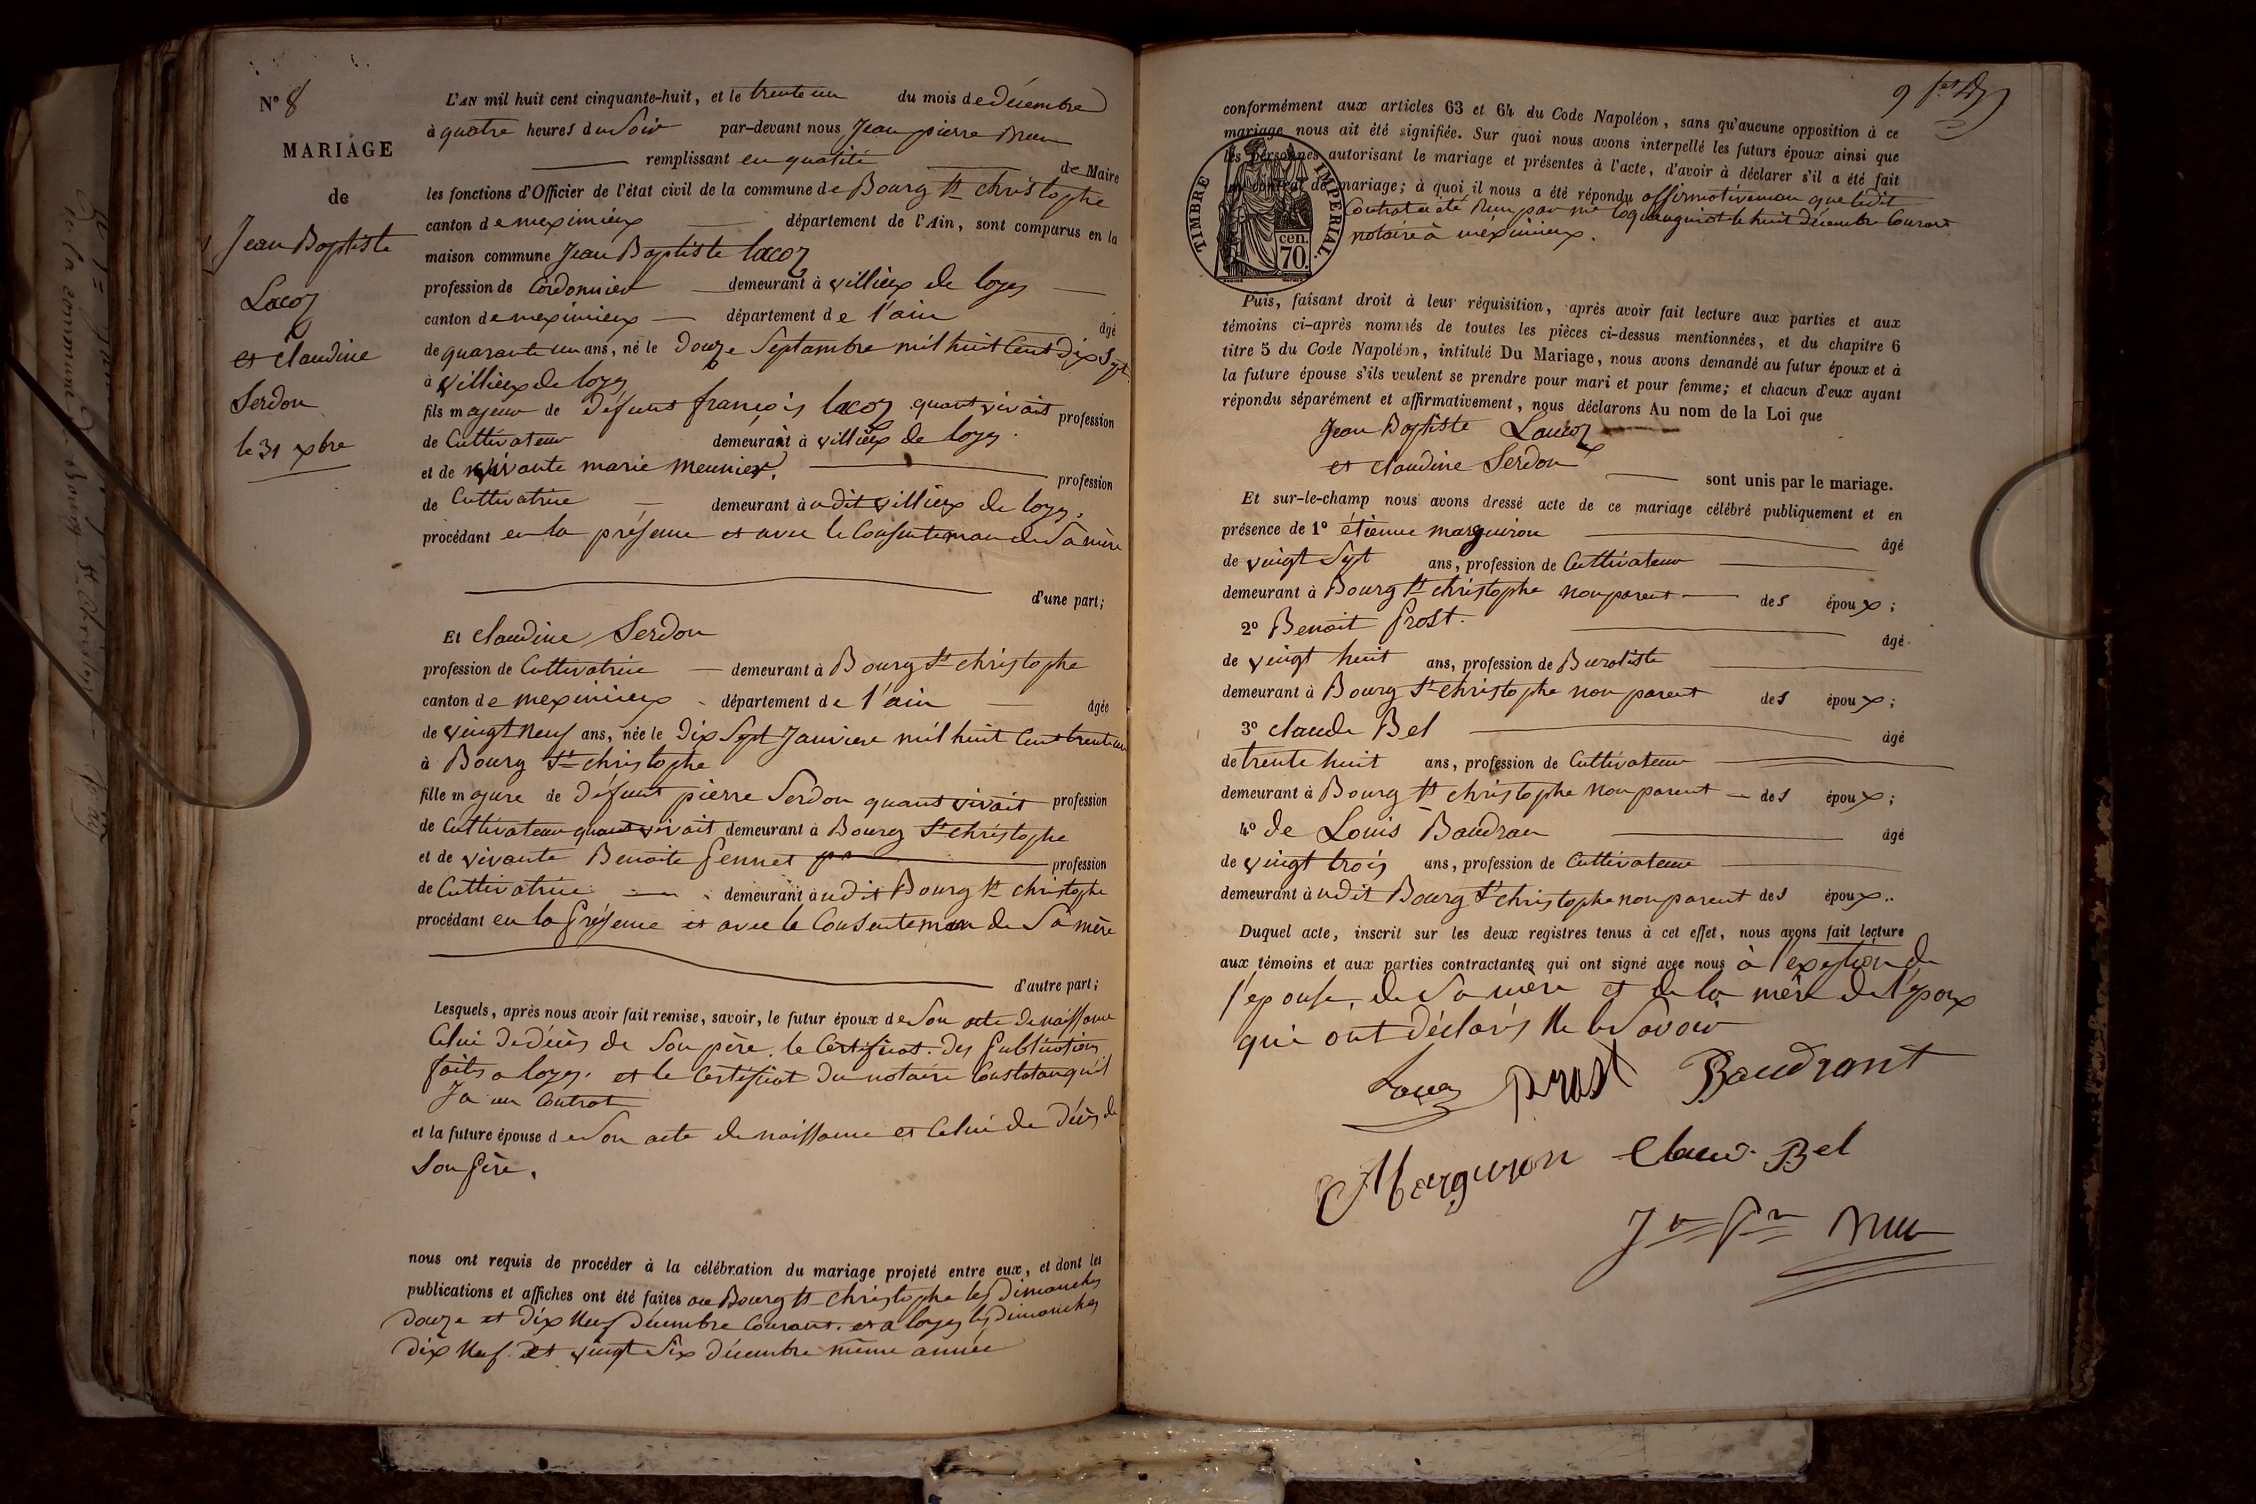 N° 8
MARIAGE
de
Jean Baptiste
Lacoz
et claudine
Serdon
le 31 xbre
L'AN mil huit cent cinquante-huit, et le trente un du mois de décembre
à quatre heures du Soir par-devant nous Jean pierre
remplissant en qualité de Maire
les fonctions d'Officier de l'état civil de la commune de Bourg St christophe
canton de meximieux département de l'Ain, sont comparus en la
maison commune Jean Baptiste lacoz
profession de Cordonnier demeurant à villieux de loyes
canton de meximieux département de l'ain âgé
de quarante un ans, né le Douze Septambre mil huit Cent Dix Sept
à villieux de loyes
fils majeur de Défunt françois lacoz quant vivait profession
de Cultivateur demeurant à villieux de loyes.
et de vivante marie meunier, profession
de Cultivatrice demeurant à udit villieux de loyes,
procédant en la présence et avec le Consenteman de Sa mère
d'une part;
Et claudine Serdon
profession de Cultivatrice demeurant à Bourg St christophe
canton de meximieux département de l'ain âgée
de vingt neuf ans, née le Dix Sept Janvier mil huit Cent trente un
à Bourg St christophe
fille majure de Défunt pierre Serdon quant vivait profession
de Cultivateur quant vivait demeurant à Bourg St christophe
et de vivante Benoite Gennet profession
de Cultivatrice demeurant à udit Bourg St christophe
procédant en la présence et avec le Consenteman de Sa mère
d'autre part;
Lesquels, après nous avoir fait remise, savoir, le futur époux de Son acte de naissance
Celui de décès de Son père. le Certificat des publications
faits a loyes. et le Certificat du notaire Constatan qu'il
Ja un Contrat
et la future épouse de Son acte de naissance et Celui de Décès de
Son père.
nous ont requis de procéder à la célébration du mariage projeté entre eux, et dont les
publications et affiches ont été faites au Bourg St christophe les Dimanches
Douze et Dix Neuf Décembre Courant. et a loyes les Dimanches
Dix Neuf et vingt Six Décembre même année
9
conformément aux articles 63 et 64 du Code Napoléon, sans qu'aucune opposition à ce
mariage nous ait été signifiée. Sur quoi nous avons interpellé les futurs époux ainsi que
les personnes autorisant le mariage et présentes à l'acte, d'avoir à déclarer s'il a été fait
un contrat de mariage; à quoi il nous a été répondu affirmativeman que ledit
Contrat a été reçu par me le huit Décembre Courant
notaire à meximieux.
TIMBRE IMPERIAL.
cen.
70.
Puis, faisant droit à leur réquisition, après avoir fait lecture aux parties et aux
témoins ci-après nommés de toutes les pièces ci-dessus mentionnées, et du chapitre 6
titre 5 du Code Napoléon, intitulé Du Mariage, nous avons demandé au futur époux et à
la future épouse s'ils veulent se prendre pour mari et pour femme; et chacun d'eux ayant
répondu séparément et affirmativement, nous déclarons Au nom de la Loi que
Jean Baptiste Laucoz
et claudine Serdon
sont unis par le mariage.
Et sur-le-champ nous avons dressé acte de ce mariage célébré publiquement et en
présence de 1° étienne marguiron âgé
de vingt Sept ans, profession de Cultivateur
demeurant à Bourg St christophe non parent des époux;
2° Benoit prost. âgé
de vingt huit ans, profession de Buraliste
demeurant à Bourg St christophe non parent des époux;
3° claude Bel âgé
de trente huit ans, profession de Cultivateur
demeurant à Bourg St christophe Non parent des époux;
4° de Louis Baudran âgé
de vingt trois ans, profession de Cultivateur
demeurant à udit Bourg St christophe non parent des époux..
Duquel acte, inscrit sur les deux registres tenus à cet effet, nous avons fait lecture
aux témoins et aux parties contractantes qui ont signé avec nous à l'exeption de
l'épouse, de Sa mère et de la mère de l'époux
qui ont déclarés Ne le Savoir
Lacoz prost Baudrant
Marguiron Claude Bel
Jn Pre